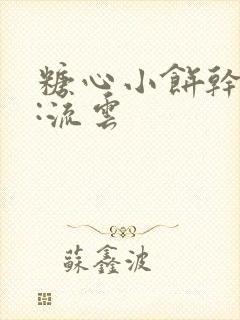 糖心小餅幹
:流雲
蘇鑫波